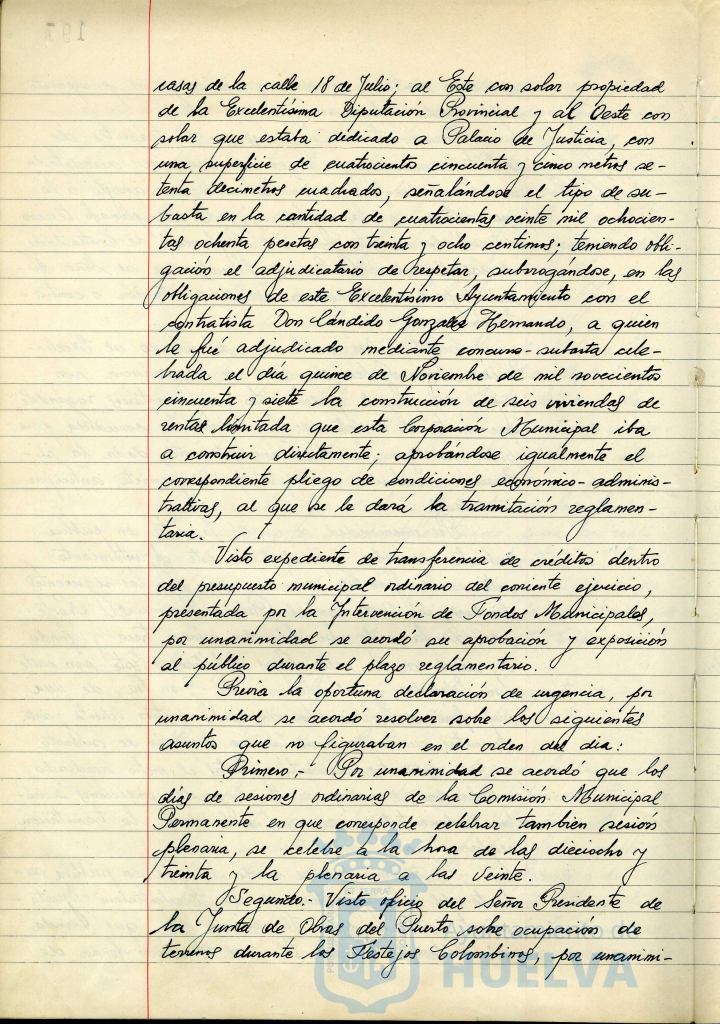 casas de la calle 18 de Julio; al Este con solar propiedad
de la Excelentísima Diputación Provincial y al Oeste con
solar que estaba dedicado a Palacio de Justicia, con
una superficie de cuatrocientos cincuenta y cinco metros se-
tenta decimetros cuadrados, señalándose el tipo de su-
basta en la cantidad de cuatrocientas veinte mil ochocien-
tas ochenta pesetas con treinta y ocho centimos; teniendo obli-
gación el adjudicatario de respetar, subrogándose, en las
obligaciones de este Excelentísimo Ayuntamiento con el
contratista Don Cándido Gonzalez Hernando, a quien
le fué adjudicado mediante concurso-subasta cele-
brada el día quince de Noviembre de mil novecientos
cincuenta y siete la construcción de seis viviendas de
rentas limitada que esta Corporación Municipal iba
a construir directamente; aprobándose igualmente el
correspondiente pliego de condiciones económico-adminis-
trativas, al que se le dará la tramitación reglamen-
taria.
Visto expediente de transferencia de créditos dentro
del presupuesto municipal ordinario del corriente ejercicio,
presentada por la Intervención de Fondos Municipales,
por unanimidad se acordó su aprobación y exposición
al público durante el plazo reglamentario.
Previa la oportuna declaración de urgencia, por
unanimidad se acordó resolver sobre los siguientes
asuntos que no figuraban en el orden del dia:
Primero.- Por unanimidad se acordó que los
días de sesiones ordinarias de la Comisión Municipal
Permanente en que corresponde celebrar tambien sesión
plenaria, se celebre a la hora de las dieciocho y
treinta y la plenaria a las veinte.
Segundo.- Visto oficio del Señor Presidente de
la Junta de Obras del Puerto sobre ocupación de
terrenos durante los Festejos Colombinos, por unanimi-
HUELVA